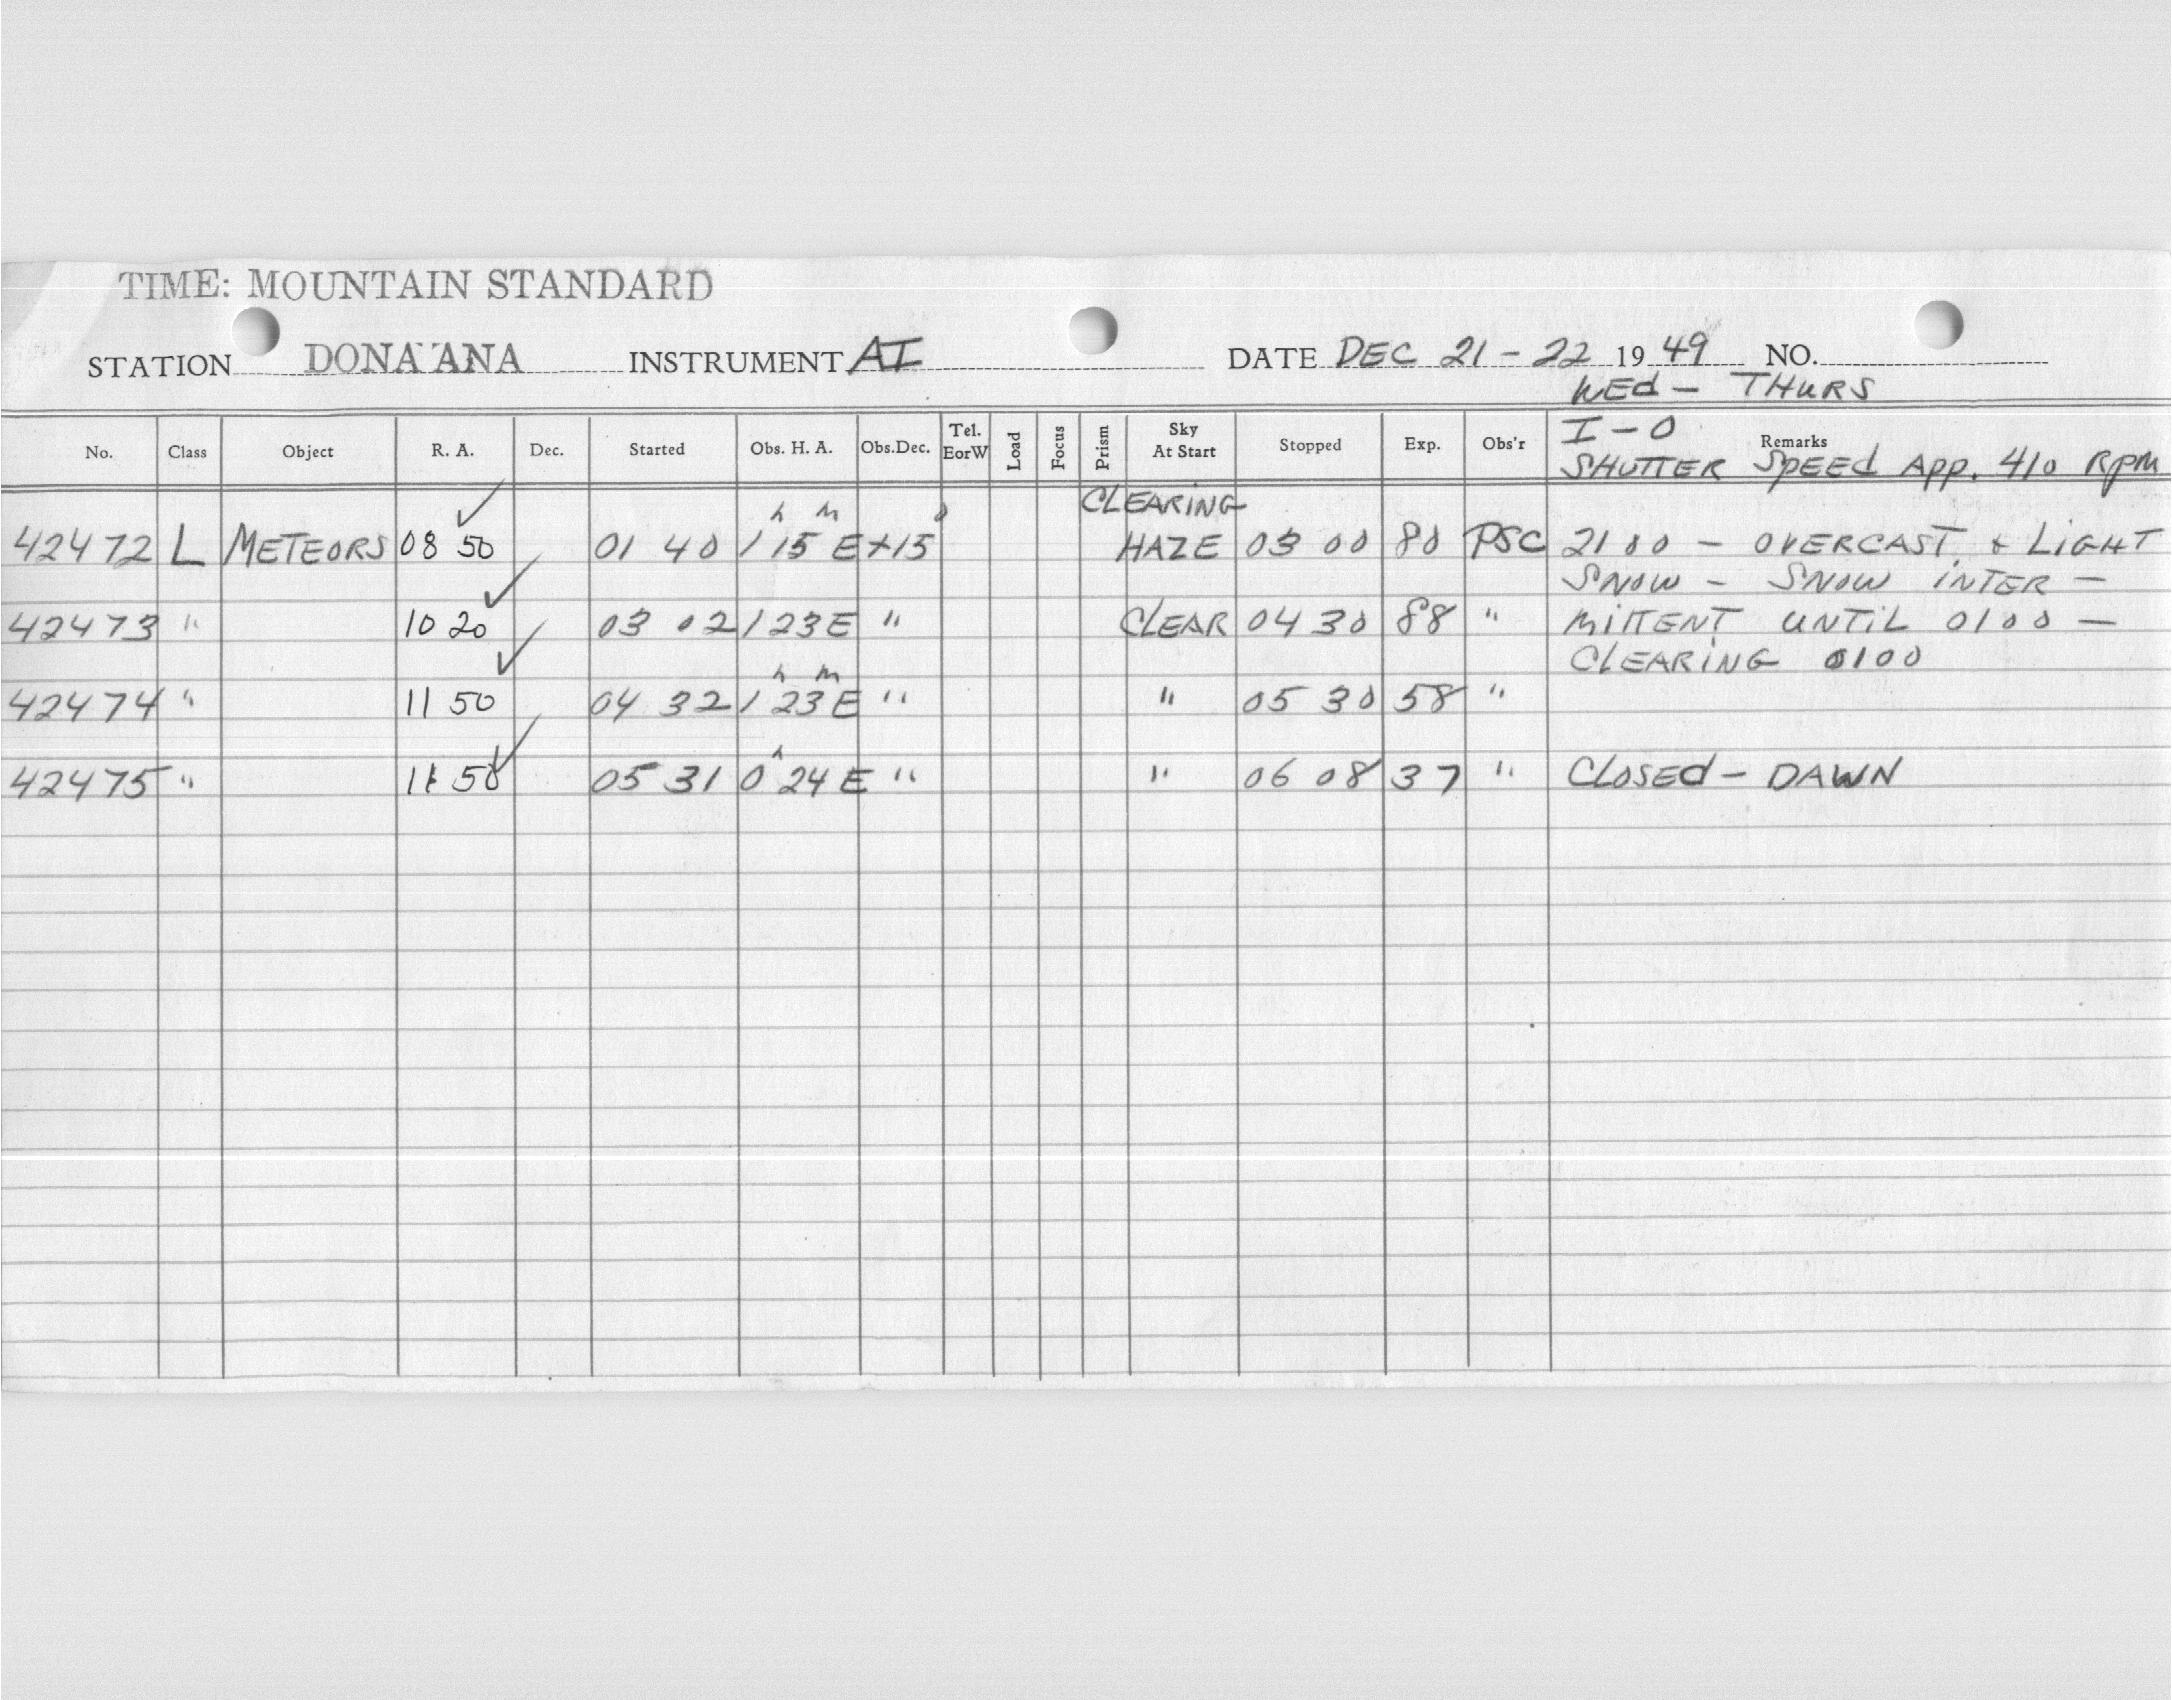 TIME: MOUNTAIN STANDARD
STATION DONA ANA INSTRUMENT AI DATE DEC 21-22 1949 NO.
WEd - THURS
I-0
No. Class Object R. A. Dec. Started Obs. H. A. Obs.Dec. Tel. EorW Load Focus Prism Sky At Start Stopped Exp. Obs'r Remarks
SHUTTER SPEEd App. 410 RPM
CLEARING
42472 L METEORS 08 50 01 40 1h 15m E +15° HAZE 03 00 80 PSC 2100 - OVERCAST + LIGHT
SNOW - SNOW INTER -
42473 " 10 20 03 02 1 23 E " CLEAR 04 30 88 " MITTENT UNTIL 0100 -
CLEARING 0100
42474 " 11 50 04 32 1h 23m E " " 05 30 58 "
42475 " 11 50 05 31 0h 24 E " " 06 08 37 " CLOSEd - DAWN